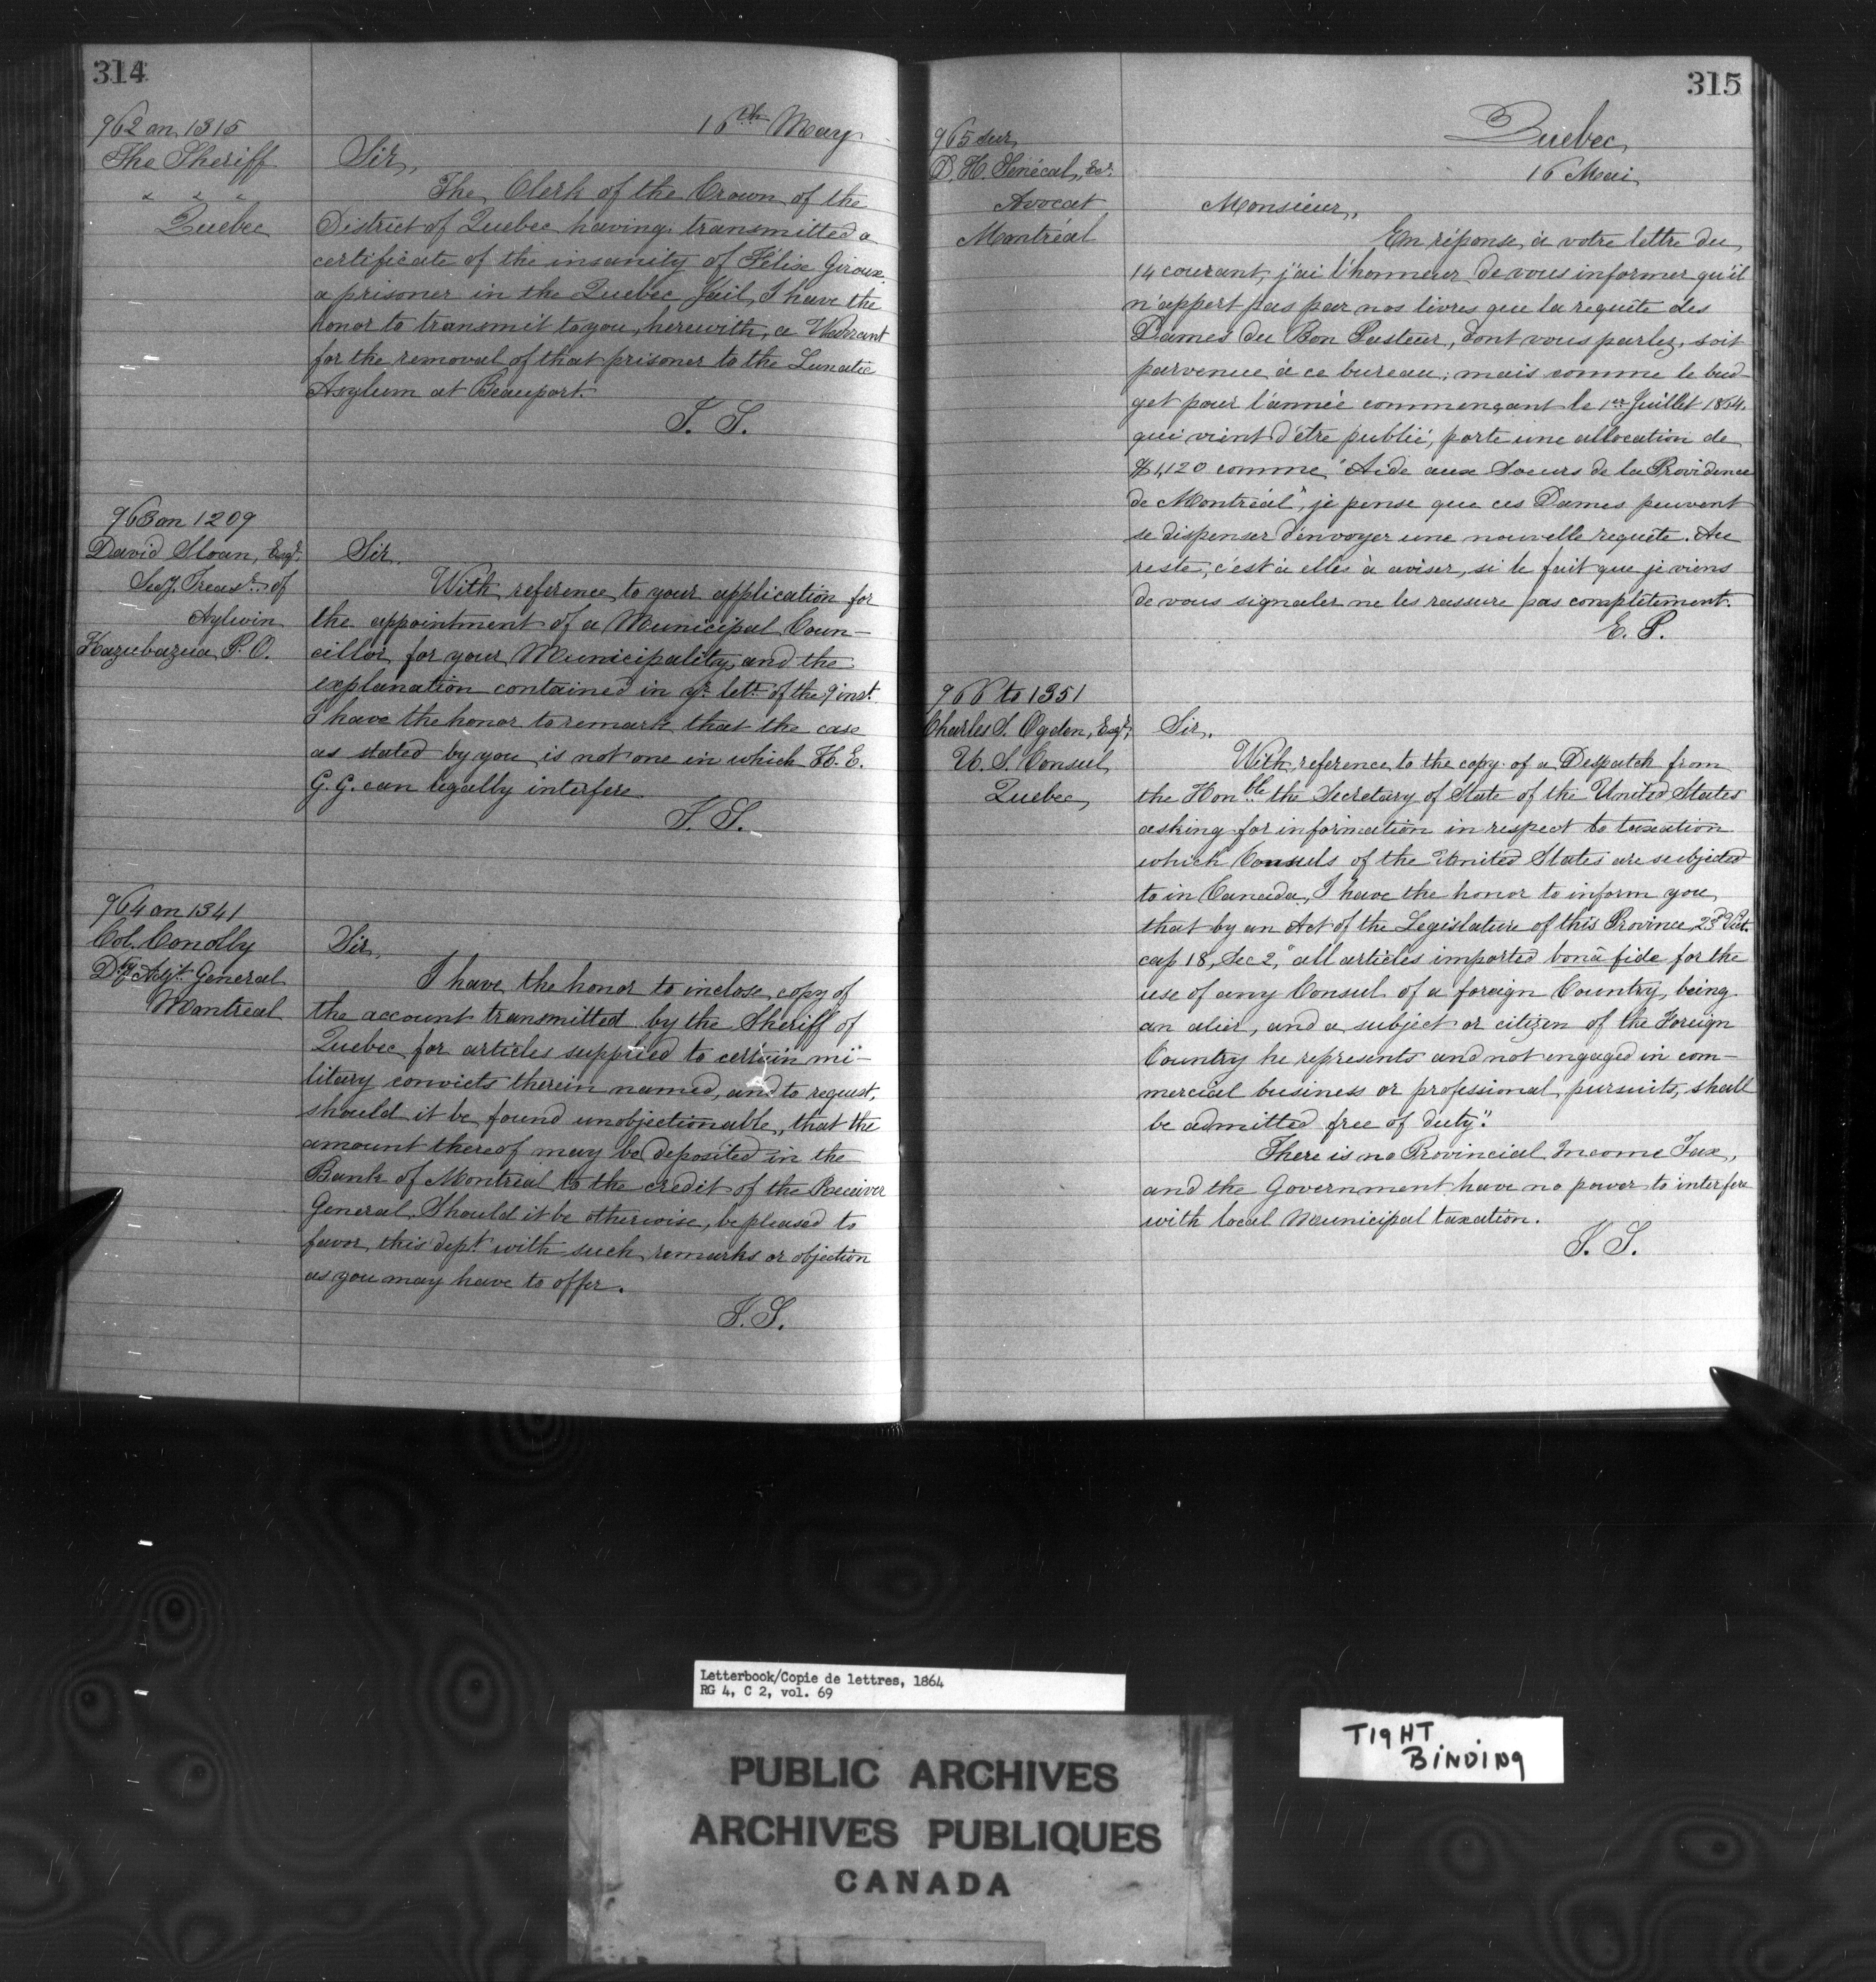 314
962 on 1315
The Sheriff
" " "
Quebec
16th May
Sir,
The Clerk of the Crown of the
District of Quebec having transmitted a
certificate of the insanity of Félix Giroux
a prisoner in the Quebec Jail, I have the
honor to transmit to you, herewith, a Warrant
for the removal of that prisoner to the Lunatic
Asylum at Beauport.
T. S.
963 on 1209
David Sloan, Esqr.
Secy. Treasr. of
Aylwin
Kazubazua P. O.
Sir,
With reference to your application for
the appointment of a Municipal Coun-
cillor for your Municipality, and the
explanation contained in yr. lettr. of the 9 inst.
I have the honor to remark that the case
as stated by you is not one in which H. E.
G. G. can legally interfere
T. S.
964 on 1341
Col. Conolly
Dy. Adjt. General
Montreal
Sir,
I have the honor to inclose copy of
the account transmitted by the Sheriff of
Quebec for articles supplied to certain mi-
litary convicts therein named, and to request,
should it be found unobjectionable, that the
amount thereof may be deposited in the
Bank of Montreal to the credit of the Receiver
General. Should it be otherwise, be pleased to
favor this dept. with such remarks or objection
as you may have to offer.
T. S.
315
965 sur
D. H. Sénécal, Ecr.
Avocat
Montréal
Quebec,
16 Mai
Monsieur,
En réponse à votre lettre du
14 courant, j'ai l'honneur de vous informer qu'il
n'appert pas par nos livres que la requête des
Dames du Bon Pasteur, dont vous parlez, soit
parvenue à ce bureau; mais comme le bud-
get pour l'année commençant le 1er Juillet 1864.
qui vient d'être publié, porte une allocation de
$1,120 comme "Aide aux Soeurs de la Providence
de Montréal", je pense que ces Dames peuvent
se dispenser d'envoyer une nouvelle requête. Au
reste, c'est à elles à aviser, si le fait que je viens
de vous signaler ne les rassure pas complètement.
E. P.
966 to 1351
Charles S. Ogden, Esqr;
U. S. Consul,
Quebec,
Sir,
With reference to the copy of a Despatch from
the Honble. the Secretary of State of the United States
asking for information in respect to taxation
which Consuls of the United States are subjected
to in Canada, I have the honor to inform you,
that by an Act of the Legislature of this Province, 23d Vict.
cap 18, Sec 2, "all articles imported bonâ fide for the
use of any Consul of a foreign Country, being
an alien, and a subject or citizen of the Foreign
Country he represents and not engaged in com-
mercial business or professional pursuits, shall
be admitted free of duty".
There is no Provincial Income Tax,
and the Government have no power to interfere
with local Municipal taxation.
T. S.
Letterbook/Copie de lettres, 1864
RG 4, C 2, vol. 69
PUBLIC ARCHIVES
ARCHIVES PUBLIQUES
CANADA
TIGHT
BINDING